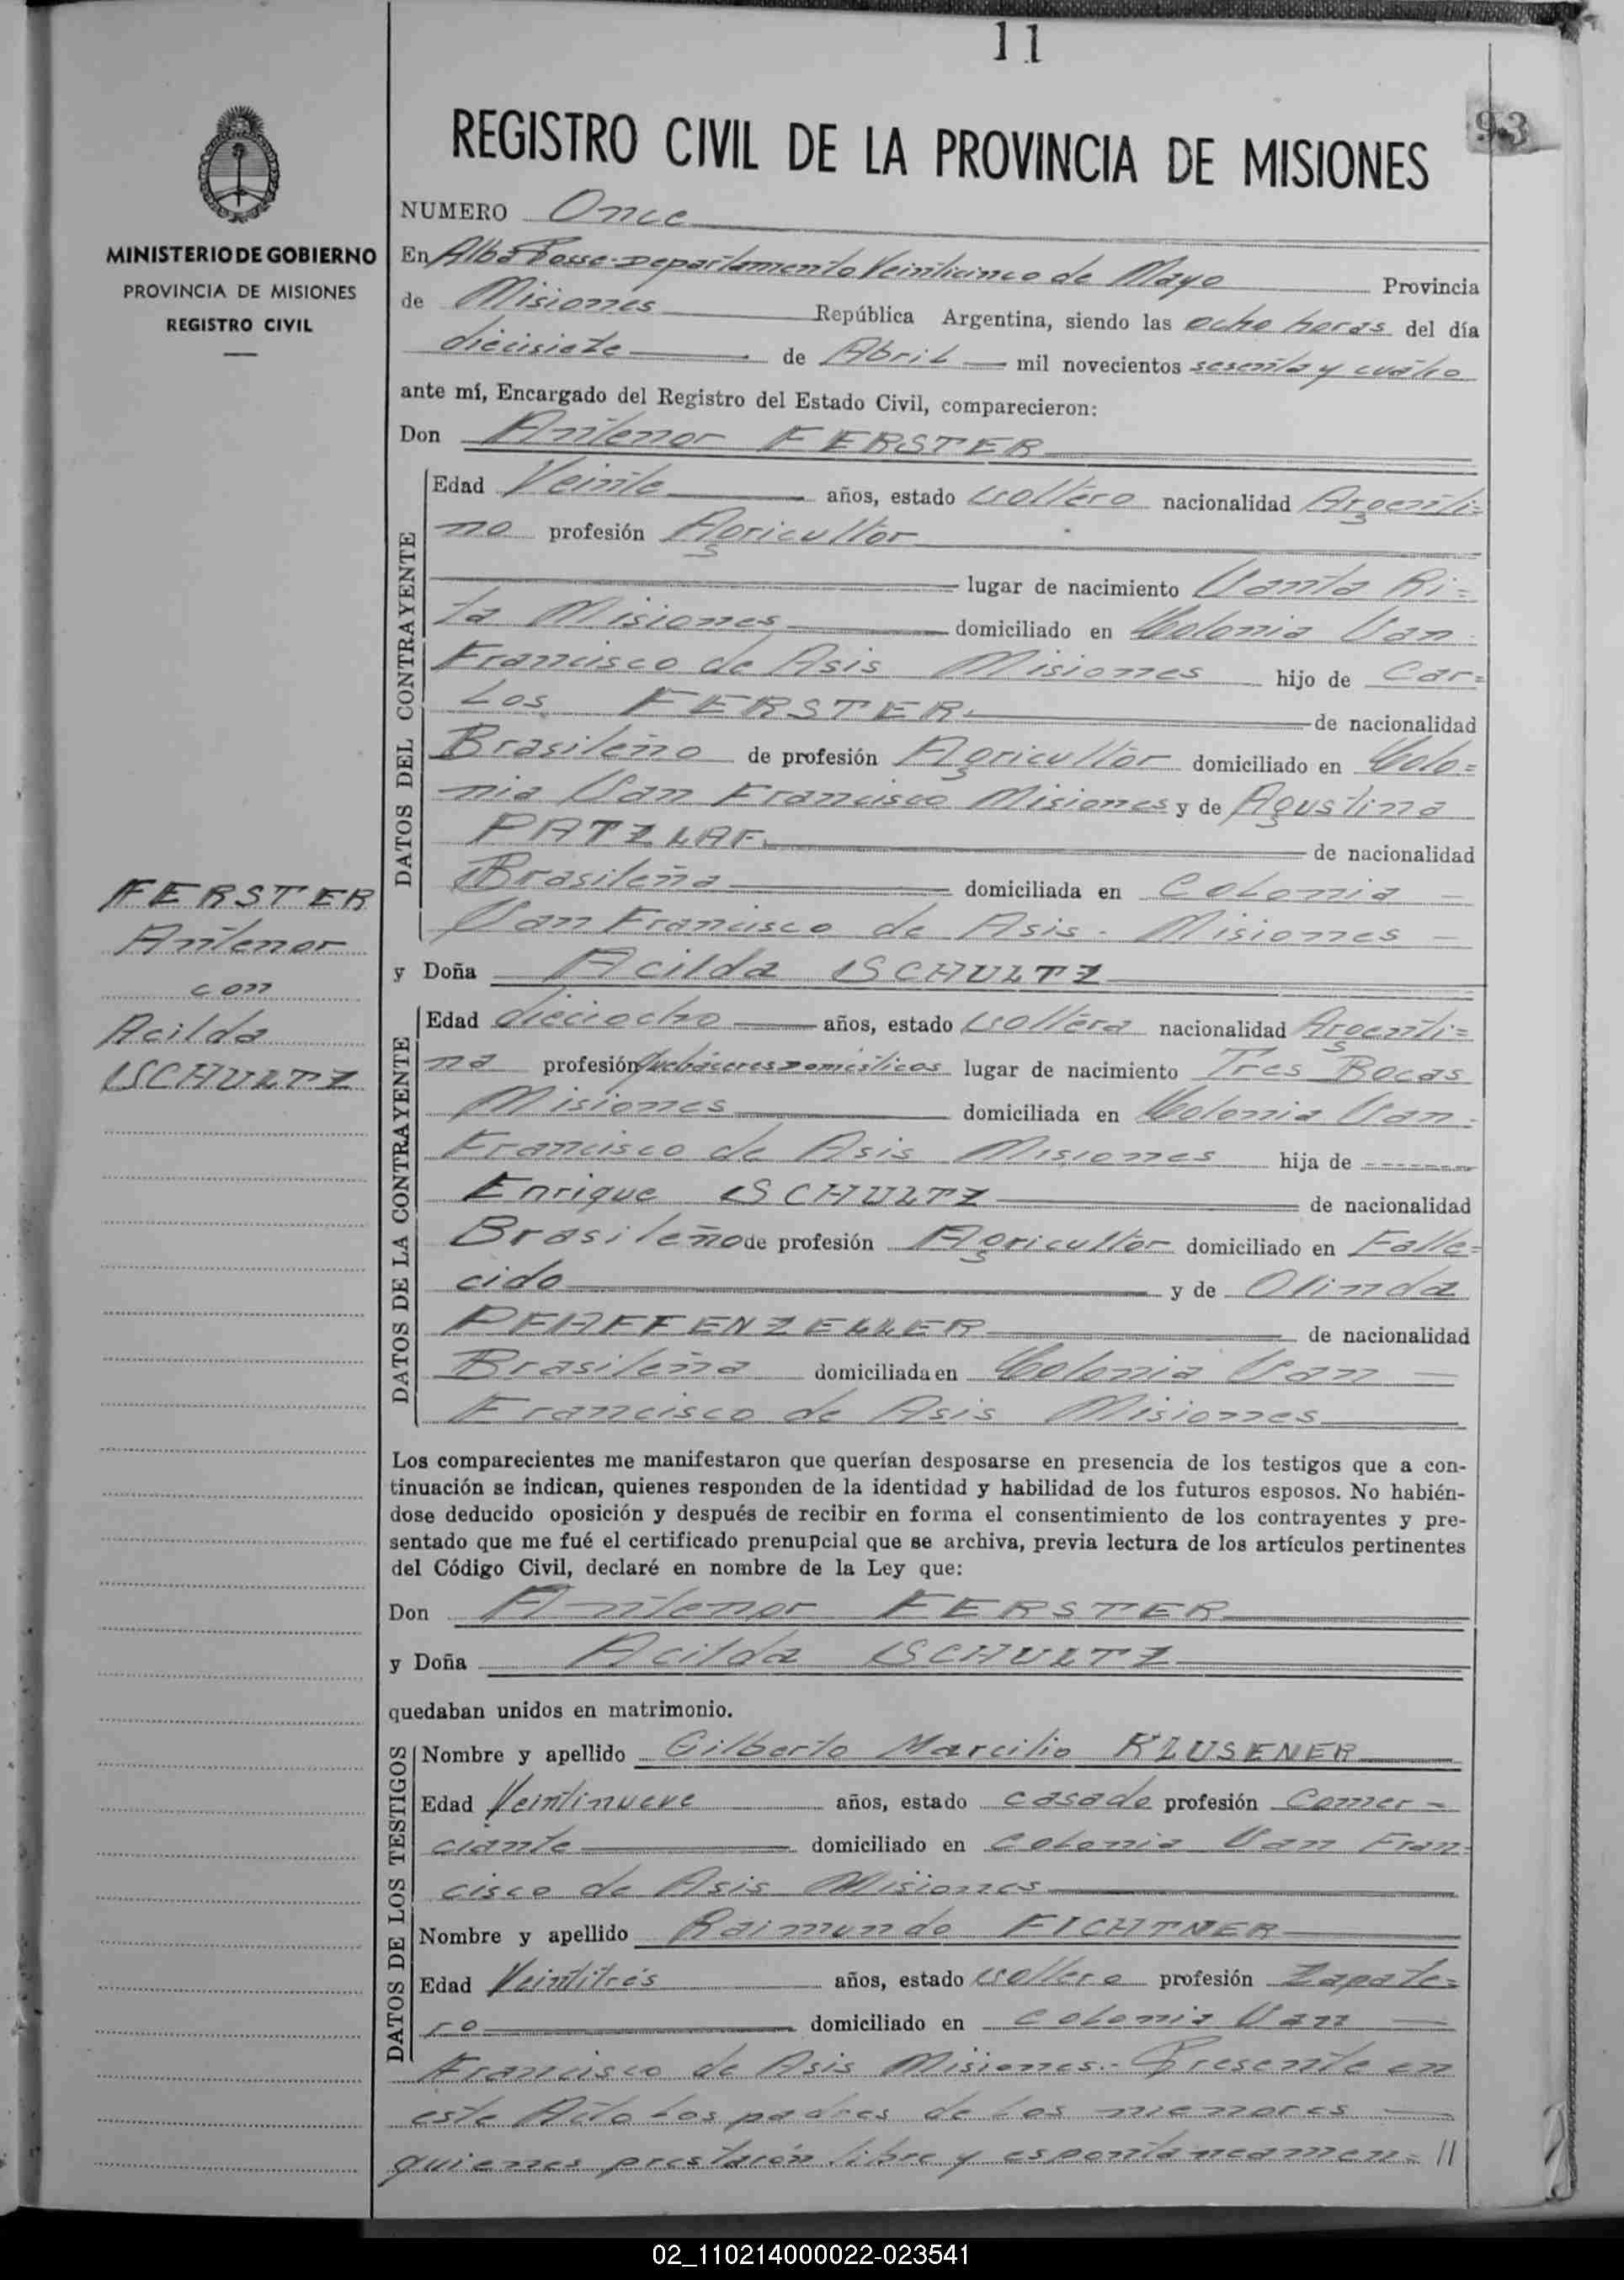 11
93
REGISTRO CIVIL DE LA PROVINCIA DE MISIONES
MINISTERIO DE GOBIERNO
PROVINCIA DE MISIONES
REGISTRO CIVIL
NUMERO Once
En Alba Posse-Departamento Veinticinco de Mayo Provincia
de Misiones República Argentina, siendo las ocho horas del día
diecisiete de Abril mil novecientos sesenta y cuatro
ante mí, Encargado del Registro del Estado Civil, comparecieron:
Don Antenor FERSTER
DATOS DEL CONTRAYENTE
Edad Veinte años, estado soltero nacionalidad Argenti=
no profesión Agricultor
lugar de nacimiento Santa Ri=
ta Misiones domiciliado en Colonia San
Francisco de Asis Misiones hijo de Car=
los FERSTER de nacionalidad
Brasileño de profesión Agricultor domiciliado en Colo=
nia San Francisco Misiones y de Agustina
PATZLAF de nacionalidad
Brasileña domiciliada en Colonia
San Francisco de Asis. Misiones
y Doña Acilda SCHULTZ
DATOS DE LA CONTRAYENTE
Edad dieciocho años, estado soltera nacionalidad Argenti=
na profesión Quehaceres Domésticos lugar de nacimiento Tres Bocas
Misiones domiciliada en Colonia San
Francisco de Asis Misiones hija de
Enrique SCHULTZ de nacionalidad
Brasileño de profesión Agricultor domiciliado en Falle=
cido y de Olinda
PFAFFENZELLER de nacionalidad
Brasileña domiciliada en Colonia San
Francisco de Asis Misiones
FERSTER
Antenor
con
Acilda
SCHULTZ
Los comparecientes me manifestaron que querían desposarse en presencia de los testigos que a con-
tinuación se indican, quienes responden de la identidad y habilidad de los futuros esposos. No habién-
dose deducido oposición y después de recibir en forma el consentimiento de los contrayentes y pre-
sentado que me fué el certificado prenupcial que se archiva, previa lectura de los artículos pertinentes
del Código Civil, declaré en nombre de la Ley que:
Don Antenor FERSTER
y Doña Acilda SCHULTZ
quedaban unidos en matrimonio.
DATOS DE LOS TESTIGOS
Nombre y apellido Gilberto Marcilio KLUSENER
Edad Veintinueve años, estado casado profesión Comer-
ciante domiciliado en Colonia San Fran-
cisco de Asis Misiones
Nombre y apellido Raimundo FICHTNER
Edad Veintitrés años, estado soltero profesión Zapate=
ro domiciliado en Colonia San
Francisco de Asis Misiones.- Presente en
este Acto los padres de los menores
quienes prestarón libre y espontaneamen= //
02_110214000022-023541